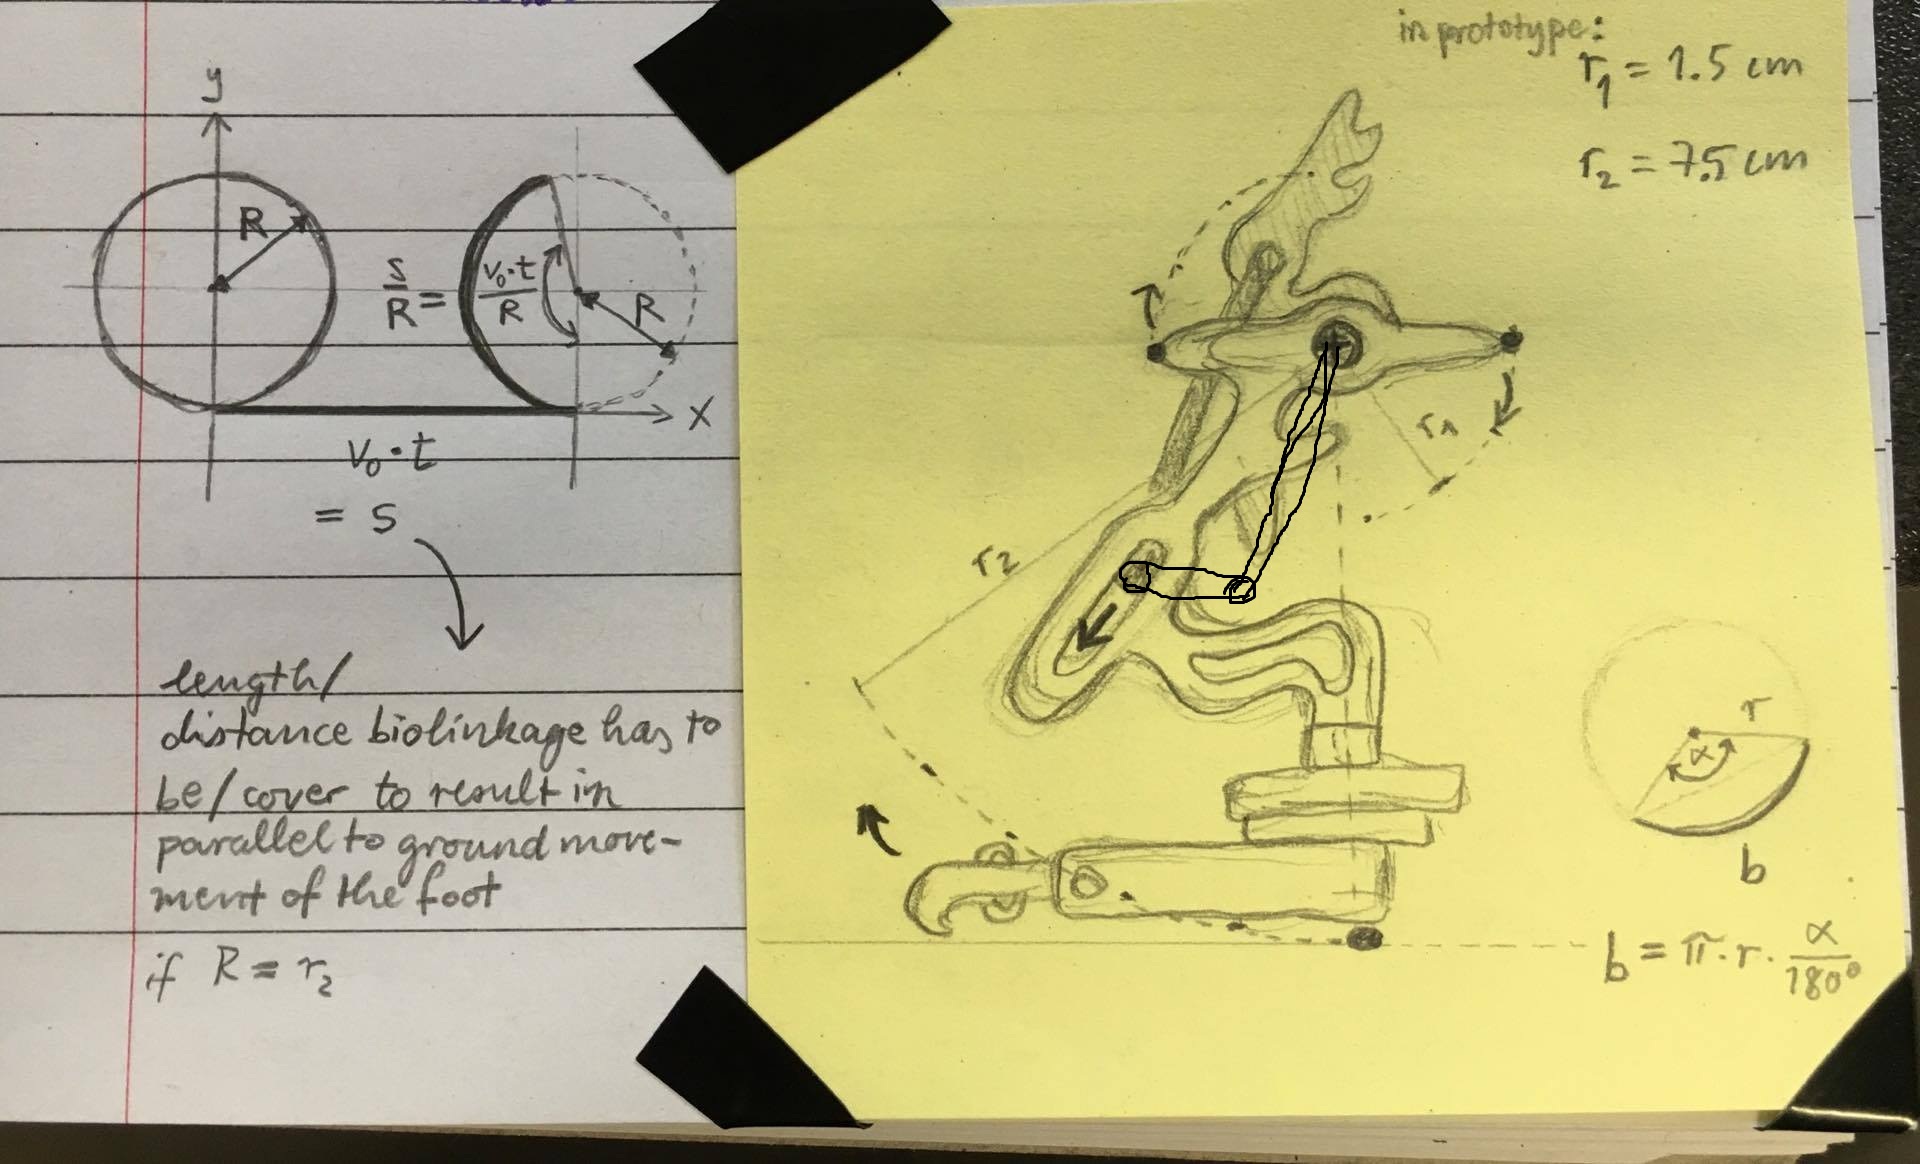 y
R
s/R = v₀·t/R
R
x
v₀·t
= s
length/
distance biolinkage has to
be/cover to result in
parallel to ground move-
ment of the foot
if R = r₂
in prototype:
r₁ = 1.5 cm
r₂ = 7.5 cm
r₁
r₂
r
α
b
b = π·r·α/180°